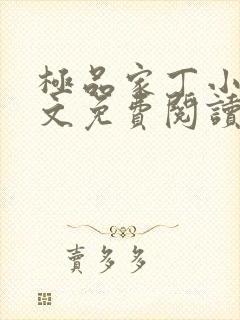 極品家丁小
文免費閱讀
賣多多